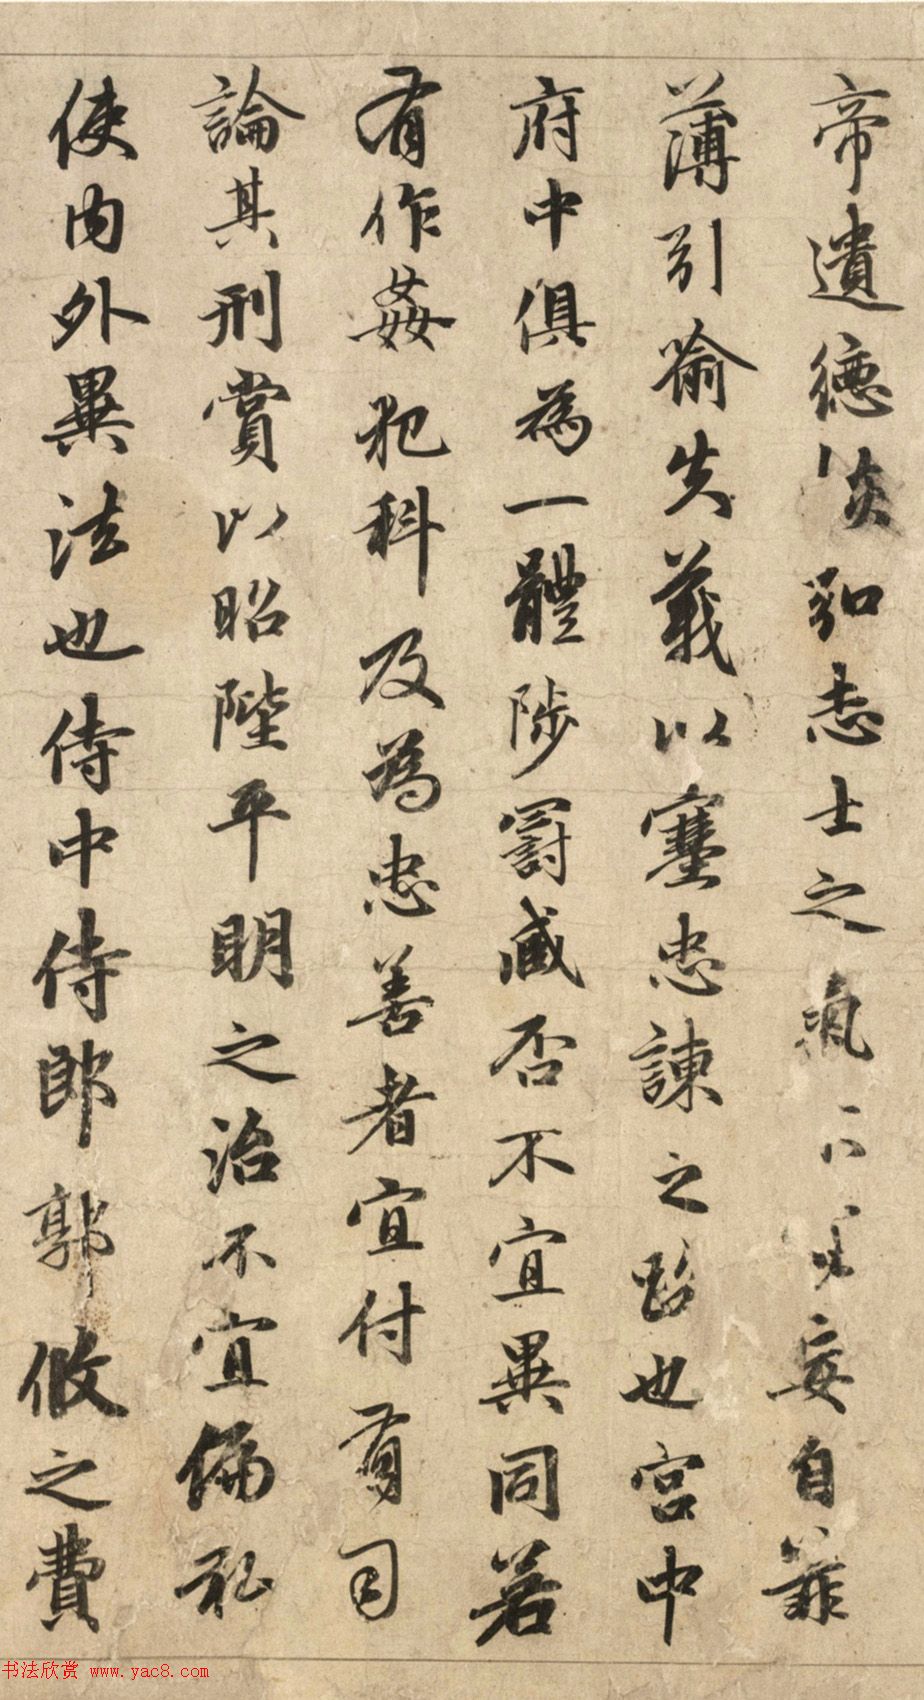 帝遺德恢弘志士之氣不妄自菲
薄引喻失義以塞忠諫之路也宮中
府中俱為一體陟罰臧否不宜異同若
有作姦犯科及為忠善者宜付有司
論其刑賞以昭陛平明之治不宜偏私
使內外異法也侍中侍郎郭攸之費
书法欣赏 www.yac8.com